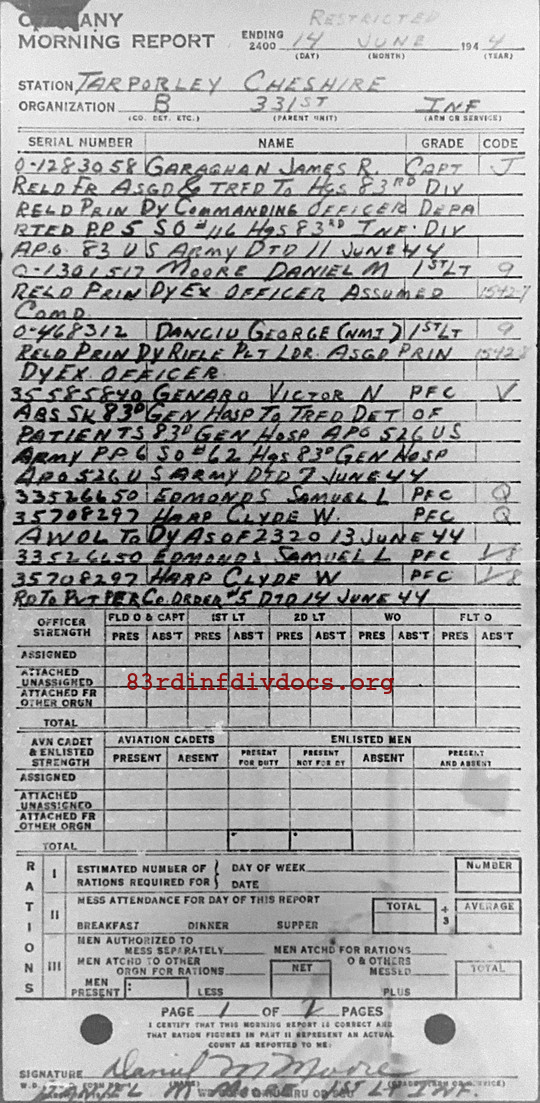 RESTRICTED
COMPANY
MORNING REPORT ENDING 2400 14 JUNE 1944
(DAY) (MONTH) (YEAR)
STATION TARPORLEY CHESHIRE
ORGANIZATION B 331ST INF
(CO. DET. ETC.) (PARENT UNIT) (ARM OR SERVICE)
SERIAL NUMBER NAME GRADE CODE
O-1283058 GARAGHAN JAMES R. CAPT J
RELD FR ASGD & TRFD TO HQS 83RD DIV
RELD PRIN DY COMMANDING OFFICER DEPA
RTED P.P. 5 SO #116 HQS 83RD INF. DIV
A.P.O. 83 U S ARMY DTD 11 JUNE 44
O-1301517 MOORE DANIEL M 1ST LT 9
RELD PRIN DY EX. OFFICER ASSUMED 1542-7
COMD.
O-468312 DANCIU GEORGE (NMI) 1ST LT 9
RELD PRIN DY RIFLE PLT LDR. ASGD PRIN 1542
DY EX. OFFICER.
35585840 GENARO VICTOR N PFC V
ABS SK 83D GEN HOSP TO TRFD DET OF
PATIENTS 83D GEN HOSP APO 526 US
ARMY PP 6 SO #62 HQS 83D GEN HOSP
APO 526 U S ARMY DTD 7 JUNE 44
33526650 EDMONDS SAMUEL L PFC Q
35708297 HARP CLYDE W. PFC Q
AWOL TO DY AS OF 2320 13 JUNE 44
33526650 EDMONDS SAMUEL L PFC V8
35708297 HARP CLYDE W PFC V8
RD TO PVT PER CO. ORDER #5 DTD 14 JUNE 44
OFFICER STRENGTH FLD O & CAPT 1ST LT 2D LT WO FLT O
PRES ABS'T PRES ABS'T PRES ABS'T PRES ABS'T PRES ABS'T
ASSIGNED
ATTACHED UNASSIGNED
83rdinfdivdocs.org
ATTACHED FR OTHER ORGN
TOTAL
AVN CADET & ENLISTED STRENGTH AVIATION CADETS ENLISTED MEN
PRESENT ABSENT PRESENT FOR DUTY PRESENT NOT FOR DY ABSENT PRESENT AND ABSENT
ASSIGNED
ATTACHED UNASSIGNED
ATTACHED FR OTHER ORGN
TOTAL
RATIONS
I ESTIMATED NUMBER OF RATIONS REQUIRED FOR { DAY OF WEEK NUMBER
DATE
II MESS ATTENDANCE FOR DAY OF THIS REPORT TOTAL ÷ 3 AVERAGE
BREAKFAST DINNER SUPPER
III MEN AUTHORIZED TO MESS SEPARATELY MEN ATCHD FOR RATIONS
MEN ATCHD TO OTHER ORGN FOR RATIONS NET O & OTHERS MESSED TOTAL
MEN PRESENT : LESS PLUS
PAGE 1 OF 2 PAGES
I CERTIFY THAT THIS MORNING REPORT IS CORRECT AND
THAT RATION FIGURES IN PART II REPRESENT AN ACTUAL
COUNT AS REPORTED TO ME:
SIGNATURE Daniel M Moore
W.D. FORM NO. 1 (NAME) (GRADE)(ARM OR SERVICE)
DANIEL M MOORE 1ST LT INF.